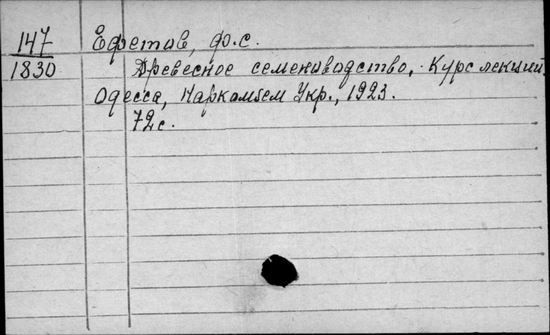 147 Ефетов, Ф.С.
1830 Древесное семеноводство, Курс лекций
Одесса, Наркомзем Укр., 1923.
72 с.